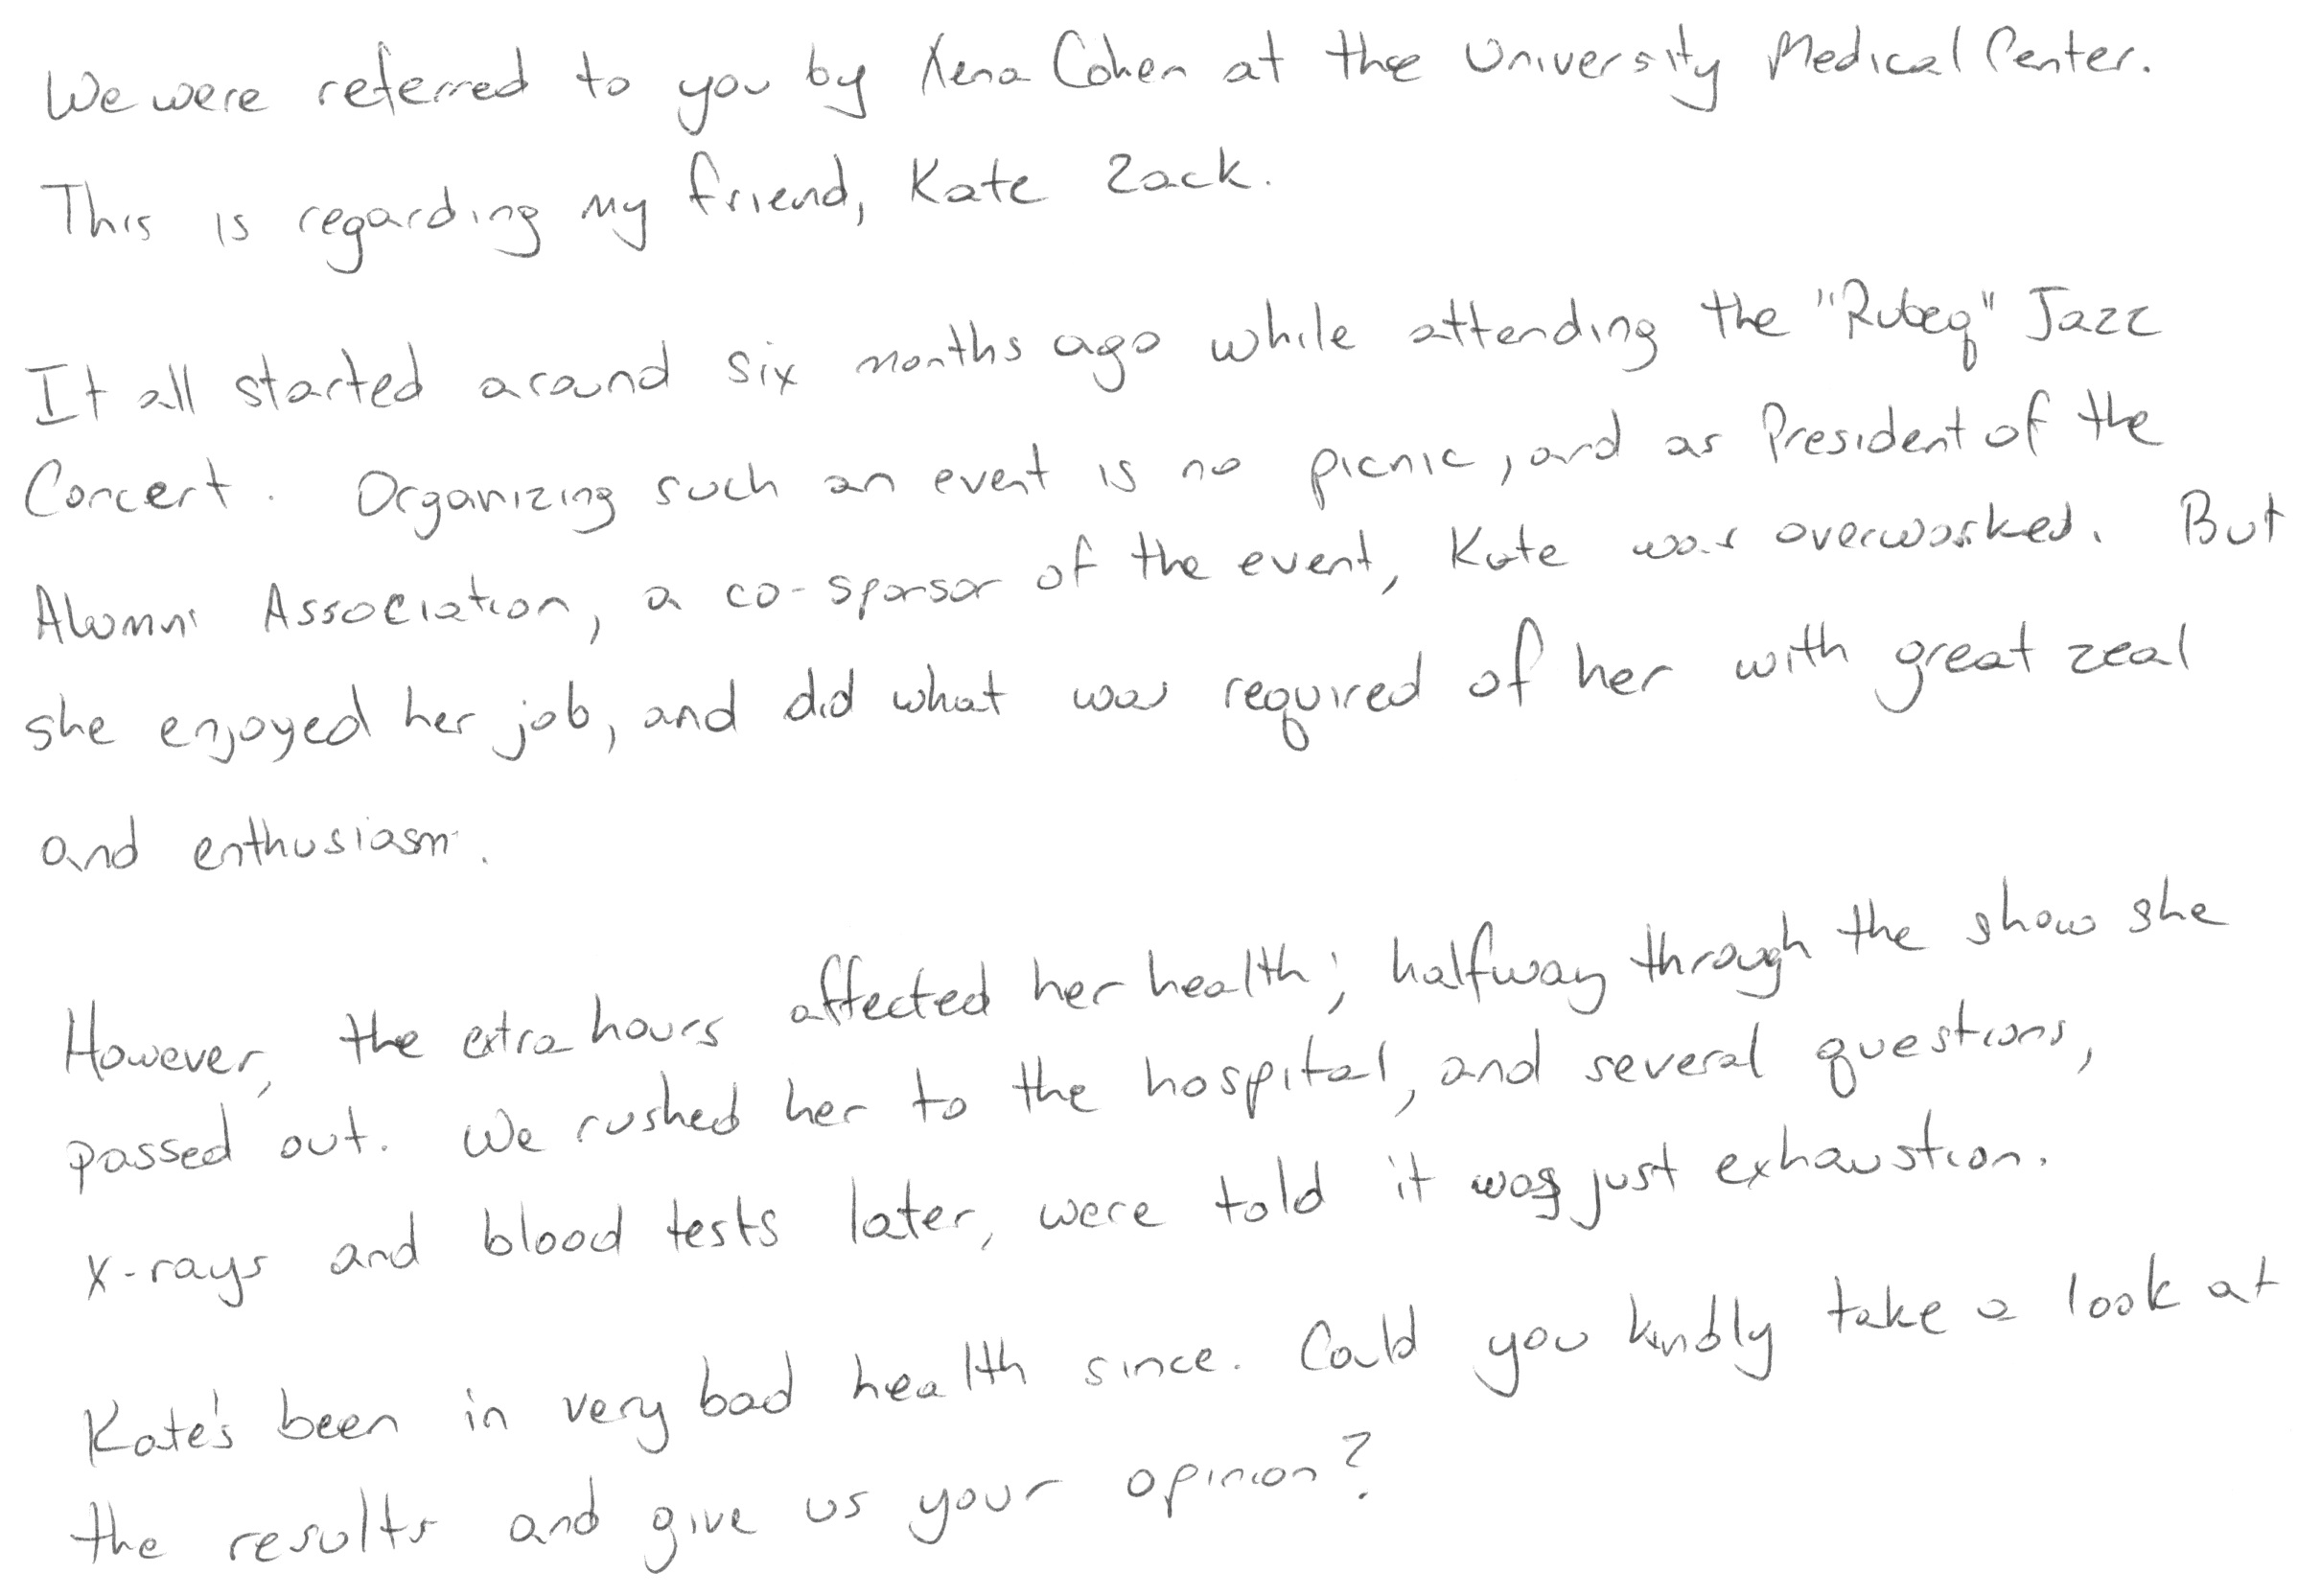 We were referred to you by Xena Cohen at the University Medical Center.
This is regarding my friend, Kate Zack.
It all started around six months ago while attending the "Rubeq" Jazz
Concert. Organizing such an event is no picnic, and as President of the
Alumni Association, a co-sponsor of the event, Kate was overworked. But
she enjoyed her job, and did what was required of her with great zeal
and enthusiasm.
However, the extra hours affected her health; halfway through the show she
passed out. We rushed her to the hospital, and several questions,
x-rays and blood tests later, were told it was just exhaustion.
Kate's been in very bad health since. Could you kindly take a look at
the results and give us your opinion?